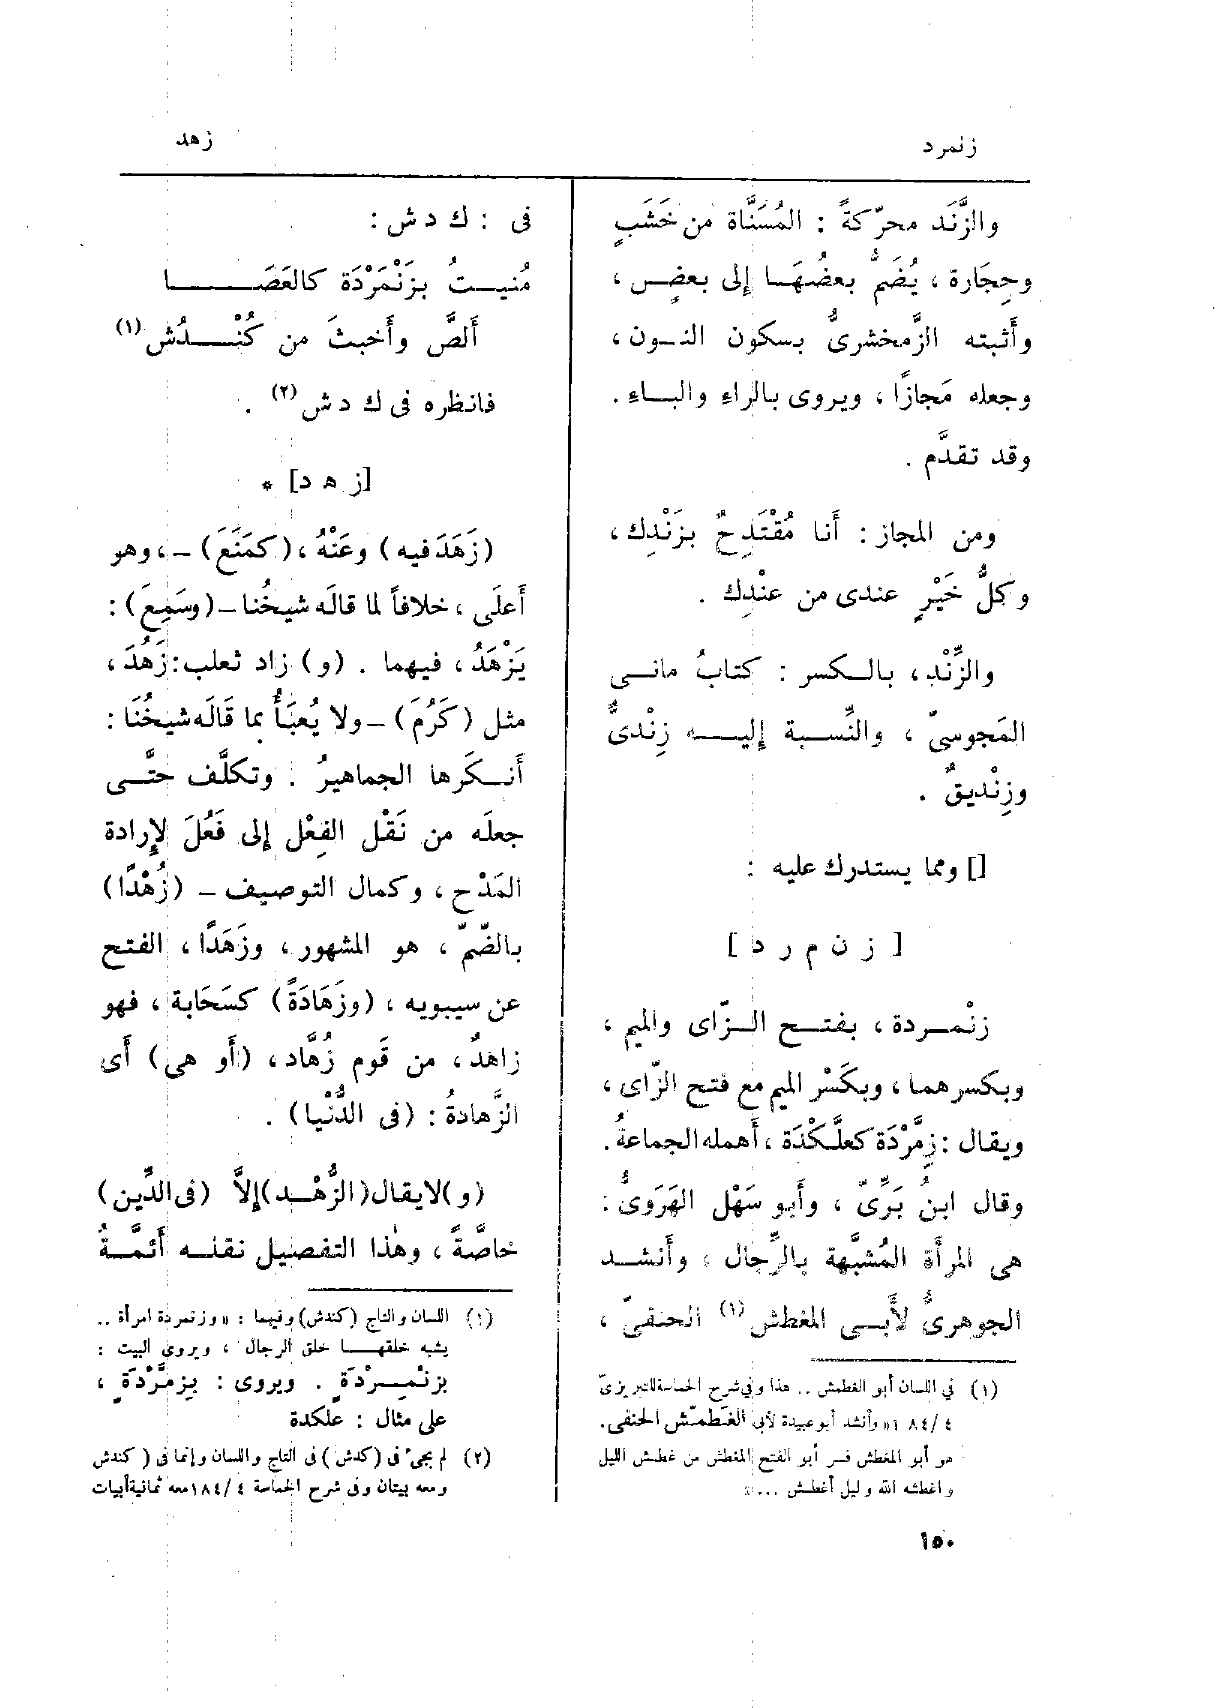 زنمرد
زهد
والزَّنَد محرّكةً : المُسَنَّاة من خَشَبٍ
وحِجَارة ، يُضَمُّ بعضُهَا إلى بعضٍ ،
وأَثبته الزَّمخشرىُّ بسكون النون ،
وجعله مَجازًا ، ويروى بالراءِ والباءِ .
وقد تقدَّم .
ومن المجاز : أَنا مُقْتَدِحٌ بزَنْدِك ،
وكلُّ خَيْرٍ عندى من عنْدِك .
والزِّنْد ، بالكسر : كتابُ مانى
المَجوسىّ ، والنِّسبة إليه زِنْدىٌّ
وزِنْديقٌ .
[] ومما يستدرك عليه :
[ ز ن م ر د ]
زنْمردة ، بفتح الزّاى والميم ،
وبكسرهما ، وبكَسْر الميم مع فتح الزّاى ،
ويقال : زِمَّرْدَة كعِلَّكْدَة ، أَهمله الجماعةُ .
وقال ابنُ بَرِّىّ ، وأَبو سَهْل الهَرَوىُّ :
هى المرأَة المُشبَّهة بالرِّجال ، وأَنشد
الجوهرىُّ لأَبى المغطش (١) الحنفىّ ،
(١) فى اللسان أبو الغطمش .. هذا وفى شرح الحماسة للتبريزىّ
٤ / ١٨٤ « وأنشد أبو عبيدة لأبى الغَطَمَّش الحنفى .
هو أبو المغطش فسر أبو الفتح المغطش من غطش الليل
وأغطشه الله وليل أغطش ... »
فى : ك د ش :
مُنيتُ بزَنْمَرْدَة كالعَصَا
أَلصَّ وأَخبثَ من كُنْدُش (١)
فانظره فى ك د ش (٢) .
[ز ه د] *
(زَهَدَ فيه) وعَنْهُ ، (كمَنَعَ) – ، وهو
أَعلَى ، خلافاً لما قالَه شيخُنا – (وسَمِعَ) :
يَزْهَدُ ، فيهما . (و) زاد ثعلب : زَهُدَ ،
مثل (كَرُمَ) – ولا يُعبَأُ بما قَالَه شيخُنَا :
أَنكَرها الجماهيرُ . وتكلَّف حتَّى
جعلَه من نَقْل الفِعْل إلى فَعُلَ لإِرادة
المَدْح ، وكمال التوصيف – (زُهْدًا)
بالضّمّ ، هو المشهور ، وزَهَدًا ، الفتح
عن سيبويه ، (وزَهَادَةً) كسَحَابة ، فهو
زاهدٌ ، من قَوم زُهَّاد ، (أَو هى) أَى
الزَّهادةُ : (فى الدُّنْيا) .
(و) لا يقال (الزُّهْد) إلاَّ (فى الدِّين)
خاصَّةً ، وهٰذا التفصيل نقله أَئمَّةُ
(١) اللسان والتاج (كندش) وفيهما : « وزنمردة امرأة ..
يشبه خلقها خلق الرجال ، ويروى البيت :
بزِنْمِرْدَةٍ . ويروى : بِزِمَّرْدَةٍ ،
على مثال : علكدة
(٢) لم يجىء فى (كدش) فى التاج واللسان وإنما فى (كندش
ومعه بيتان وفى شرح الحماسة ٤ / ١٨٤ معه ثمانية أبيات
١٥٠